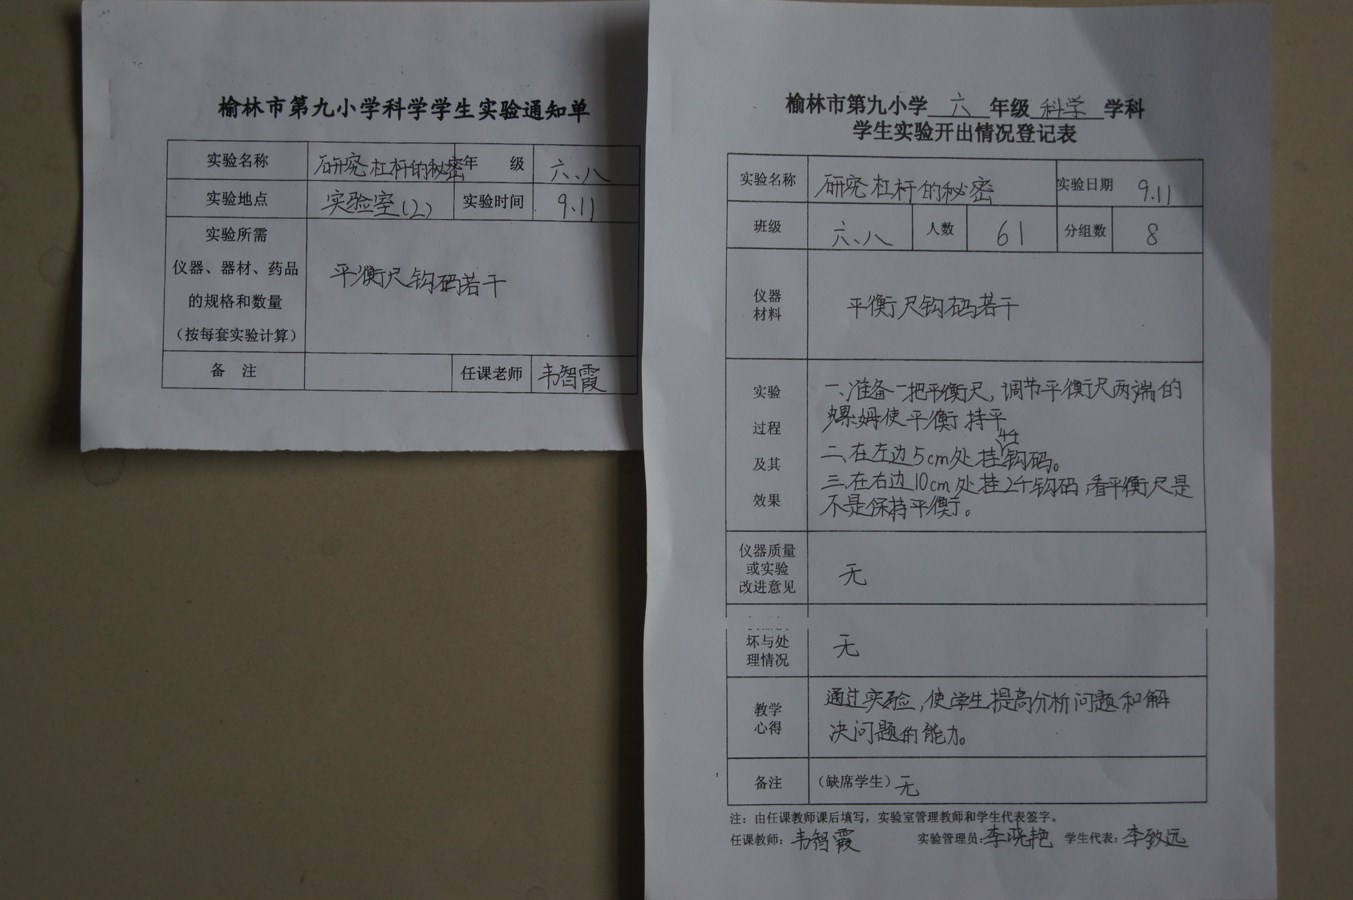 榆林市第九小学科学学生实验通知单
实验名称 研究杠杆的秘密 年 级 六、八
实验地点 实验室(2) 实验时间 9.11
实验所需
仪器、器材、药品
的规格和数量
(按每套实验计算)
平衡尺钩码若干
备 注 任课老师 韦智霞
榆林市第九小学 六 年级 科学 学科
学生实验开出情况登记表
实验名称 研究杠杆的秘密 实验日期 9.11
班级 六、八 人数 61 分组数 8
仪器
材料
平衡尺钩码若干
实验
过程
及其
效果
一、准备一把平衡尺,调节平衡尺两端的
螺姆使平衡持平
二、在左边5cm处挂4个钩码。
三、在右边10cm处挂2个钩码,看平衡尺是
不是保持平衡。
仪器质量
或实验
改进意见
无
坏与处
理情况
无
教学
心得
通过实验,使学生提高分析问题和解
决问题的能力。
备注 (缺席学生) 无
注:由任课教师课后填写,实验室管理教师和学生代表签字。
任课教师:韦智霞 实验管理员:李晓艳 学生代表:李致远